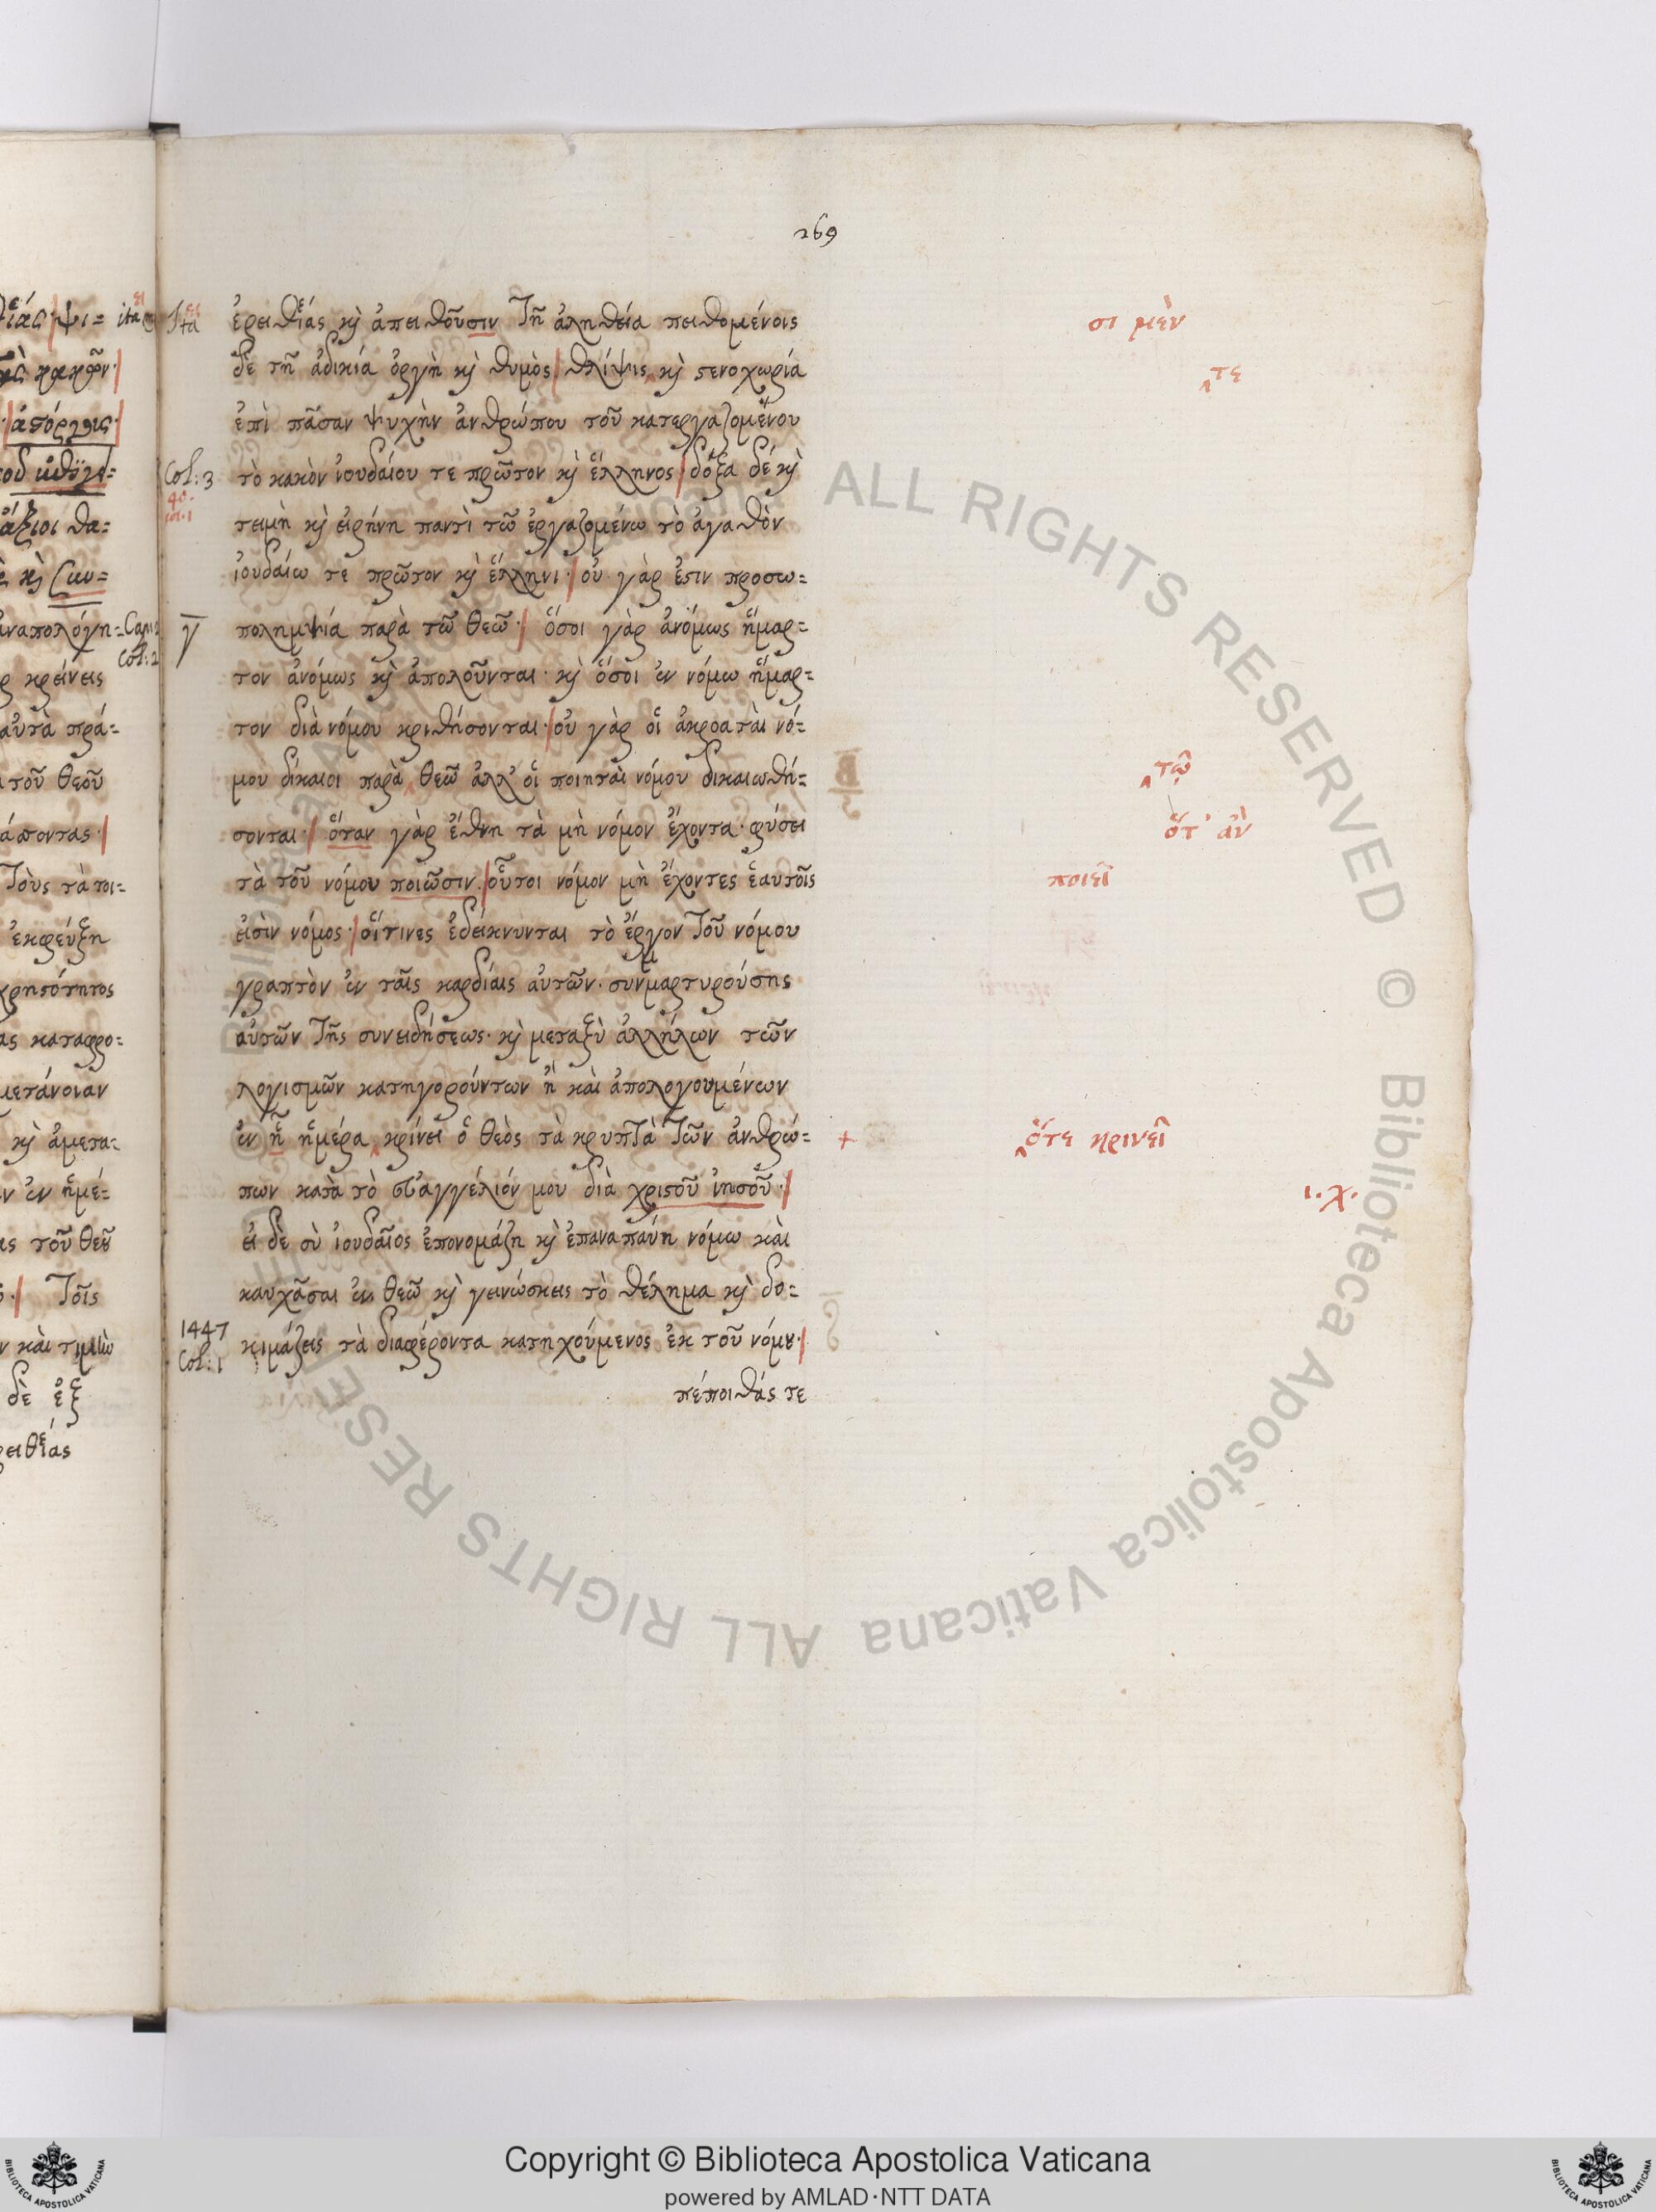 269
Ita ἐρειθείας κὶ ἀπειθοῦσιν τῆ ἀληθεία πειθομένοις σι μὲν
δὲ τῆ ἀδικία ὀργὴ κὶ θυμὸς| θλίψις κὶ στενοχωρία τε
ἐπὶ πᾶσαν ψυχὴν ἀνθρώπου τοῦ κατεργαζομένου
Col: 3 τὸ κακὸν ἰουδαίου τε πρῶτον κὶ ἕλληνος| δόξα δέ κὶ
τειμὴ κὶ εἰρήνη παντὶ τῶ ἐργαζομένω τὸ ἀγαθὸν
ἰουδαίω τε πρῶτον κὶ ἕλληνι·| οὐ γάρ ἐστιν προσω=
γ πολημψία παρὰ τῶ θεῶ·| ὅσοι γὰρ ἀνόμως ἥμαρ=
τον ἀνόμως κὶ ἀπολοῦνται· κὶ ὅσοι ἐν νόμω ἥμαρ=
τον διὰ νόμου κριθήσονται·| οὐ γὰρ οἱ ἀκροαταὶ νό=
μου δίκαιοι παρὰ θεῶ ἀλλ' οἱ ποιηταὶ νόμου δικαιωθή= τῷ
σονται·| ὅταν γὰρ ἔθνη τὰ μὴ νόμον ἔχοντα· φύσει ὅτ' ἀν
τὰ τοῦ νόμου ποιῶσιν·| οὗτοι νόμον μὴ ἔχοντες ἑαυτοῖς ποιεῖ
εἰσὶν νόμος·| οἵτινες ἐδείκνυνται τὸ ἔργον τοῦ νόμου
γραπτὸν ἐν ταῖς καρδίαις αὐτῶν· συνμαρτυρούσης
αὐτῶν τῆς συνειδήσεως· κὶ μεταξὺ ἀλλήλων τῶν
λογισμῶν κατηγορούντων ἢ καὶ ἀπολογουμένων
ἐν ἧ ἡμέρα κρίνει ὁ θεὸς τὰ κρυπτὰ τῶν ἀνθρώ= + ὅτε κρινεῖ
πων κατὰ τὸ εὐαγγέλιόν μου διὰ χριστοῦ ἰησοῦ·| ι. χ.
εἰ δὲ σὺ ἰουδαῖος ἐπονομάζη κὶ ἐπαναπαύη νόμω καὶ
καυχᾶσαι ἐν θεῶ κὶ γεινώσκεις τὸ θέλημα κὶ δο=
1447 Col: 1 κιμάζεις τὰ διαφέροντα κατηχούμενος ἐκ τοῦ νόμου·|
πέποιθάς τε
Copyright © Biblioteca Apostolica Vaticana
powered by AMLAD·NTT DATA